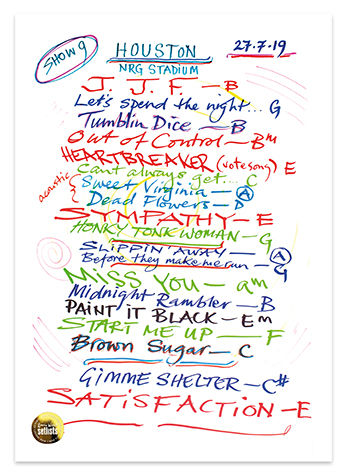 SHOW 9
HOUSTON
27.7.19
NRG STADIUM
J. J. F. — B
Let's spend the night... G
Tumblin Dice — B
Out of Control — Bm
HEARTBREAKER (vote song) E
Cant always get... C
acoustic { Sweet Virginia — A
Dead Flowers — D
SYMPATHY — E
HONKY TONK WOMAN — G
SLIPPIN' AWAY — A
Before they make me run — G
MISS YOU — am
Midnight Rambler — B
PAINT IT BLACK — Em
START ME UP — F
Brown Sugar — C
GIMME SHELTER — C#
SATISFACTION — E
setlists